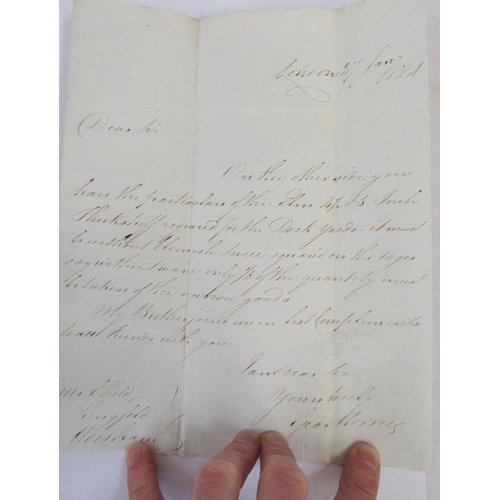 London 27 Jany
Dear Sir
On the other side you
have the particulars of the Elm 4 & 5 Inch
Thickstuff required for the Dock Yards it must
be without blemish Sware squared on the edges
say without wane only ⅓ of the quantity must
be taken of the narrow goods
My Brother joins me in best Compliments
to all friends with you
I am dear Sir
Yours truly
Mr Child
Horsham